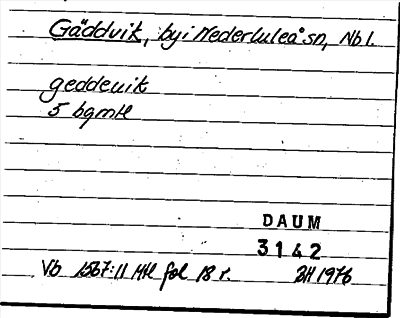 Gäddvik, by i Nederluleå sn, Nbl.
geddeuik
5 bgmtl
DAUM
3142
Vb 1567:11 Mtl fol 18 r. BH 1976